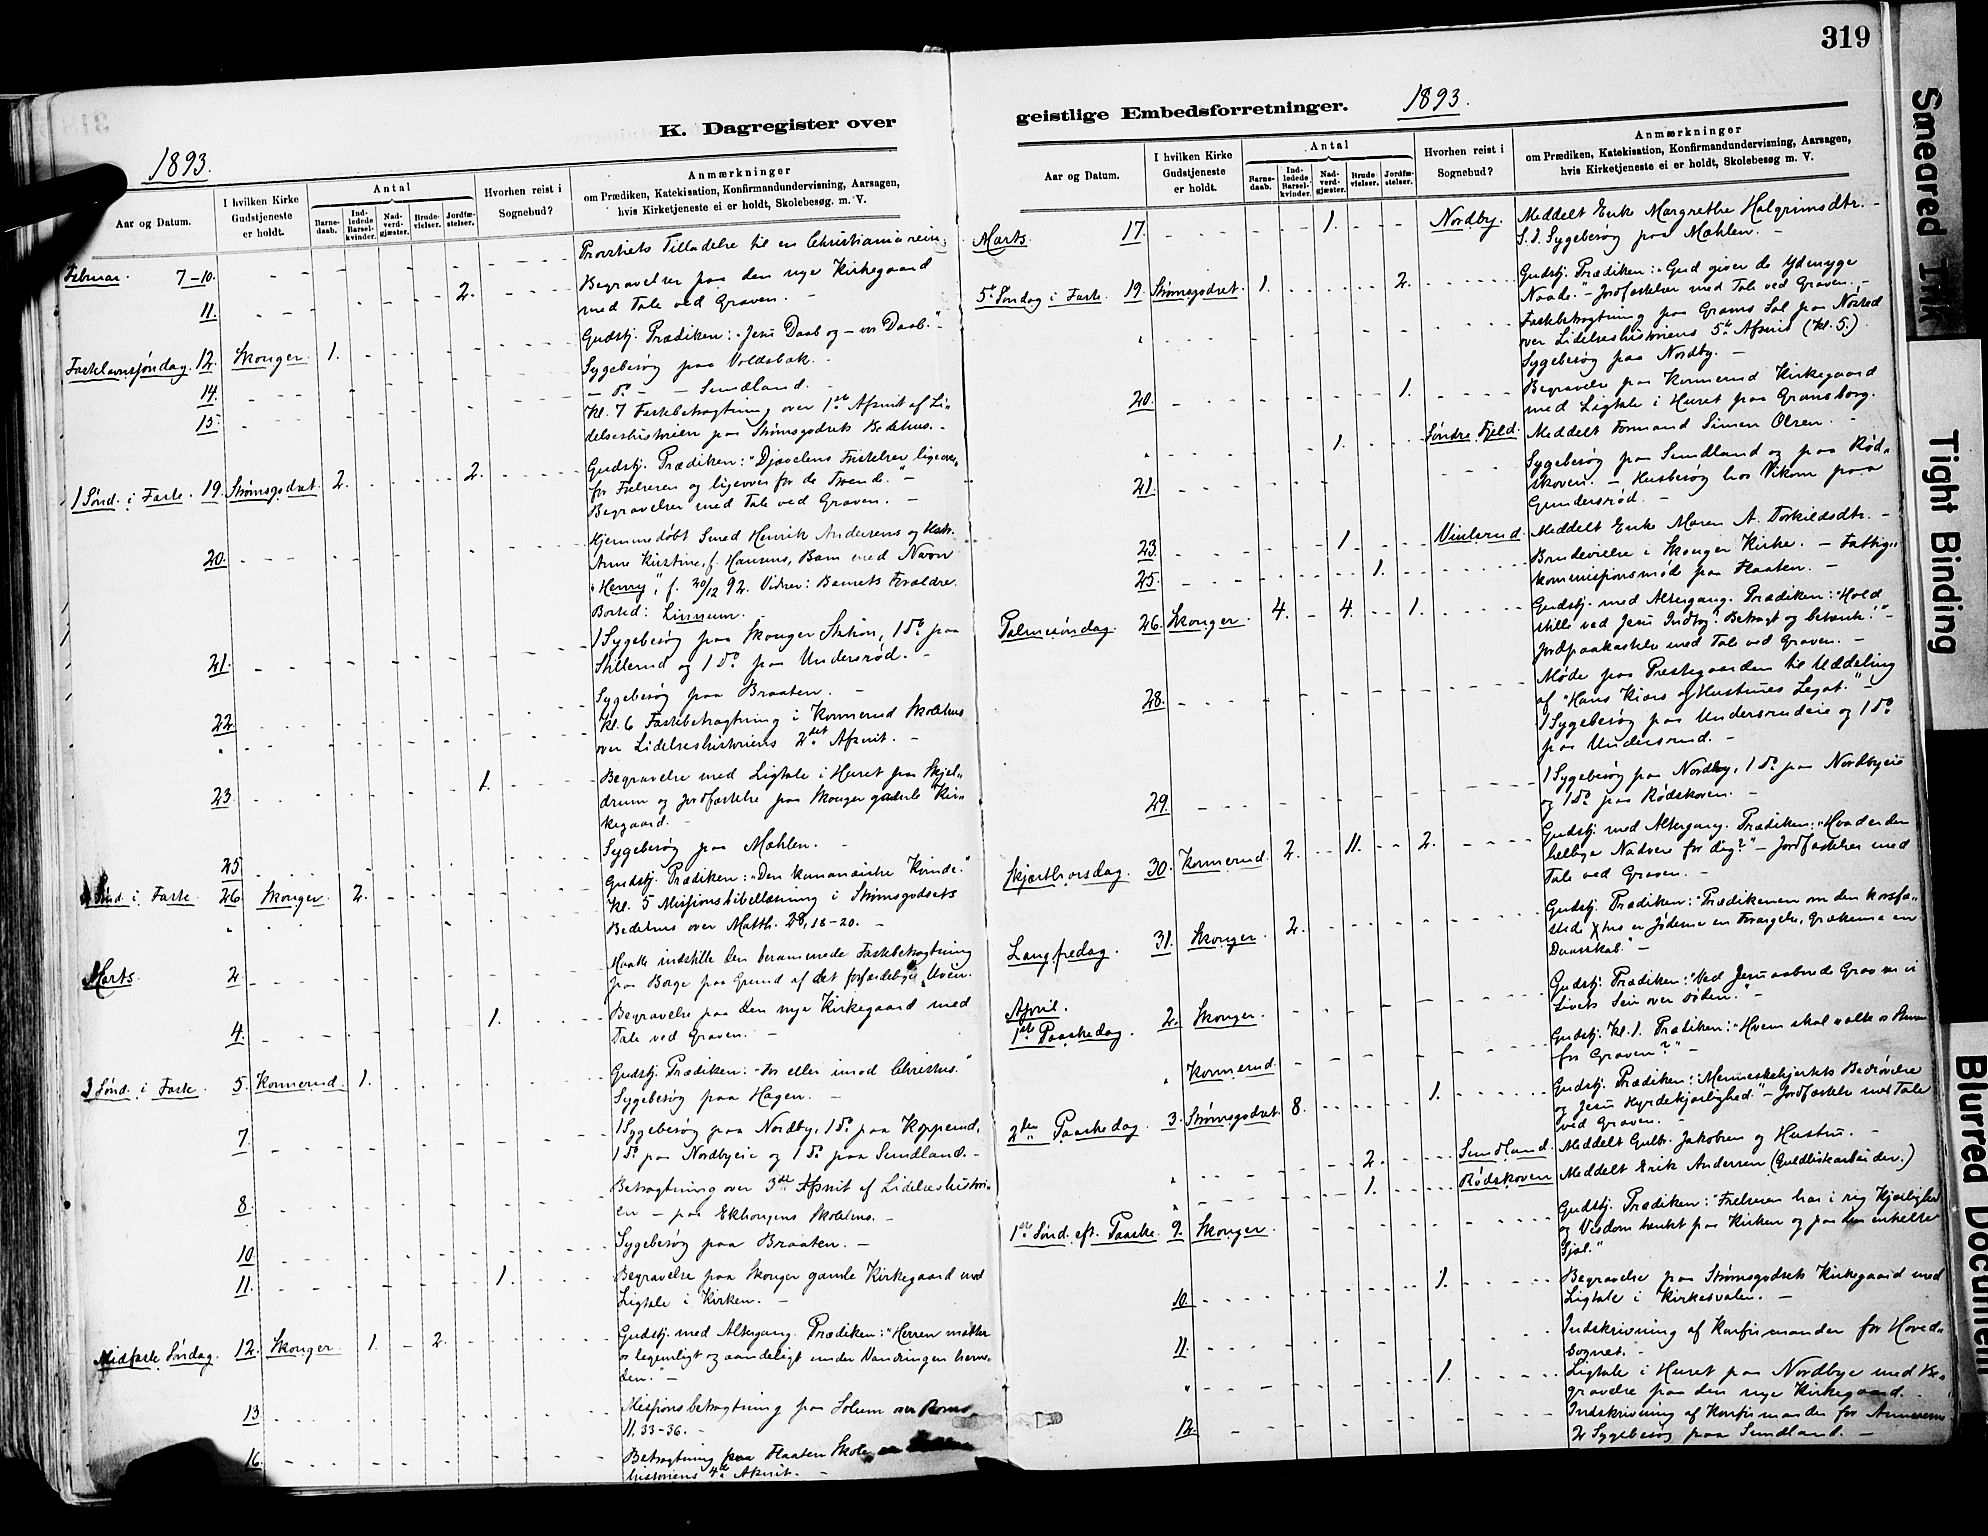 319
K. Dagregister over
1893.
Aar og Datum.
I hvilken Kirke Gudstjeneste er holdt.
Antal
Barne-daab.
Ind-ledede Barsel-kvinder.
Nad-verd-gjæster.
Brude-vielser.
Jordfæ-stelser.
Hvorhen reist i Sognebud?
Anmærkninger
om Prædiken, Katekisation, Konfirmandundervisning, Aarsagen,
hvis Kirketjeneste ei er holdt, Skolebesøg. m. V.
Februar 7-10. Provstiets Tilladelse til en Christianiareise.
11. 2. Begravelser paa den nye Kirkegaard
med Tale ved Graven. -
Fastelavnssøndag. 12. Skonger. 1. Gudstj. Prædiken: "Jesu Daab og - vor Daab." -
14. Sygebesøg paa Voldsbak. -
15. - do - Sundland. -
Kl. 7 Fastebetragtning over 1ste Afsnit af Li-
delseshistorien paa Strømsgodsets Bedehus. -
1 Sønd. i Faste. 19. Strømsgodset. 2. 2. Gudstj. Prædiken: "Djævelens Fristelser ligeover-
for Frelseren og ligeover for de Troende." -
Begravelser med Tale ved Graven. -
20. Hjemmedøbt Smed Henrik Andersens og Hustr.
Anne Kirstine, f. Hansens, Barn med Navn
"Henry", f. 30/12 92. Vidner: Barnets Forældre.
Bosted: Linnum.
21. 1 Sygebesøg paa Skonger Station, 1 do paa
Stillerud og 1 do paa Undersrød. -
22. Sygebesøg paa Braaten. -
" Kl. 6 Fastebetragtning i Konnerud Skolehus
over Lidelseshistoriens 2det Afsnit. -
23. 1. Begravelse med Ligtale i Huset paa Skjel-
drum og Jordfæstelse paa Skonger gamle Kir-
kegaard. -
25 Sygebesøg paa Mæhlen. -
Sønd. i Faste 26. Skonger. 2. Gudstj. Prædiken: "Den kananæiske Kvinde."
" Kl. 5 Missionsbibellæsning i Strømsgodsets
Bedehus over Matth. 28, 18-20. -
Marts. 2. Maatte indstille den berammede Fastebetragtning
paa Berge paa Grund af det forfærdelige Uveir.
4. 1. Begravelse paa den nye Kirkegaard med
Tale ved Graven. -
3 Sønd. i Faste. 5. Konnerud. 1. Gudstj. Prædiken: "For eller imod Christus."
Sygebesøg paa Hagen. -
7. 1 Sygebesøg paa Nordby, 1 do paa Kopperud,
1 do paa Nordbyeie og 1 do paa Sundland. -
8. Betragtning over 3die Afsnit af Lidelseshistori-
en - paa Ekholgens Skolehus. -
10. Sygebesøg paa Braaten. -
11. 1. Begravelse paa Skonger gamle Kirkegaard med
Ligtale i Kirken. -
Midfaste Søndag. 12. Skonger. 1. 2. Gudstj. med Altergang. Prædiken: "Herren mætter
os legemligt og aandeligt under Vandringen herne-
den." -
13 Missionsbetragtning paa Solum over Rom.
11, 33-36. -
16. Betragtning paa Flaaten Skole
historiens 4de Afsnit. -
geistlige Embedsforretninger.
1893.
Aar og Datum.
I hvilken Kirke Gudstjeneste er holdt.
Antal
Barne-daab.
Ind-ledede Barsel-kvinder.
Nad-verd-gjæster.
Brude-vielser.
Jordfæ-stelser.
Hvorhen reist i Sognebud?
Anmærkninger
om Prædiken, Katekisation, Konfirmandundervisning, Aarsagen,
hvis Kirketjeneste ei er holdt, Skolebesøg m. V.
Marts. 17. 1. Nordby. Meddelt Enke Margrethe Halgrimsdtr. -
S. D. Sygebesøg paa Mæhlen. -
5te Søndag i Faste. 19. Strømsgodset. 1. 2. Gudstj. Prædiken: "Gud giver de Ydmyge
Naade." - Jordfæstelser med Tale ved Graven. -
" Fastebetragtning paa Grams Sal paa Norsted
over Lidelseshistoriens 5te Afsnit (kl. 5.)
Sygebesøg paa Nordby. -
20. 1. Begravelse paa Konnerud Kirkegaard
med Ligtale i Huset paa Gransborg.
" 1. Søndre Fjeld. Meddelt Formand Simen Olsen. -
21. Sygebesøg paa Sundland og paa Rød-
skoven. - Husbesøg hos Vikom paa
Gundersrød. -
23. 1. Vinlsrud. Meddelt Enke Maren A. Torkildsdtr. -
25. 1. Brudevielse i Skonger Kirke. - Fattig-
kommissionsmød paa Flaaten. -
Palmesøndag 26. Skonger. 4. 4. 1. Gudstj. med Altergang. Prædiken: "Hold
stille ved Jesu Indtog! Betragt og betænk!" -
Jordpaakastelse med Tale ved Graven. -
28. Møde paa Prestegaarden til Uddeling
af "Hans Kiærs og Hustrues Legat." -
1 Sygebesøg paa Undersrudeie og 1 do
paa Undersrud. -
29. 1 Sygebesøg paa Nordby, 1 do paa Nordbyeie
og 1 do paa Rødskoven. -
Skjærthorsdag. 30. Konnerud. 2. 11. 2. Gudstj. med Altergang. Prædiken: "Hvad er den
hellige Nadver for dig?" - Jordfæstelser med
Tale ved Graven. -
Langfredag. 31. Skonger. 2. Gudstj. Prædiken: "Prædikenen om den korsfæ-
stede Xtus er Jøderne en Forargelse, Grækerne en
Daarskab." -
April. 1ste Paaskedag. 2. Skonger. Gudstj. Prædiken: "Ved Jesu aabnede Grav se vi
Livets Seir over Døden." -
" Konnerud. Gudstj. Kl. 1. Prædiken: "Hvem skal vælte os Stenen
fra Graven?" -
2den Paaskedag 3. Strømsgodset. 8. 1. Gudstj. Prædiken: "Menneskehjertets Bedrøvelse
og Jesu Hyrdekjærlighed." - Jordfæstelse med Tale
ved Graven. -
" 2. Sundland. Meddelt Gulbr. Jakobsen og Hustru. -
" 1. Rødskoven Meddelt Erik Andersen (Guldlistearbeider.)
1ste Sønd. eft. Paaske. 9. Skonger. Gudstj. Prædiken: "Frelseren har i sig Kjærlighed
og Visdom tænkt paa Kirken og paa den enkelte
Sjæl."
10. 1. Begravelse paa Strømsgodsets Kirkegaard med
Ligtale i Kirkesvalen. -
11. Indskrivning af Konfirmander for Hoved-
sognet. -
" 1. Ligtale i Huset paa Nordbye med Be-
gravelse paa den nye Kirkegaard. -
12. Indskrivning af Konfirmander for Annexerne.
2 Sygebesøg paa Sundland. -
Smeared Ink
Tight Binding
Blurred Document